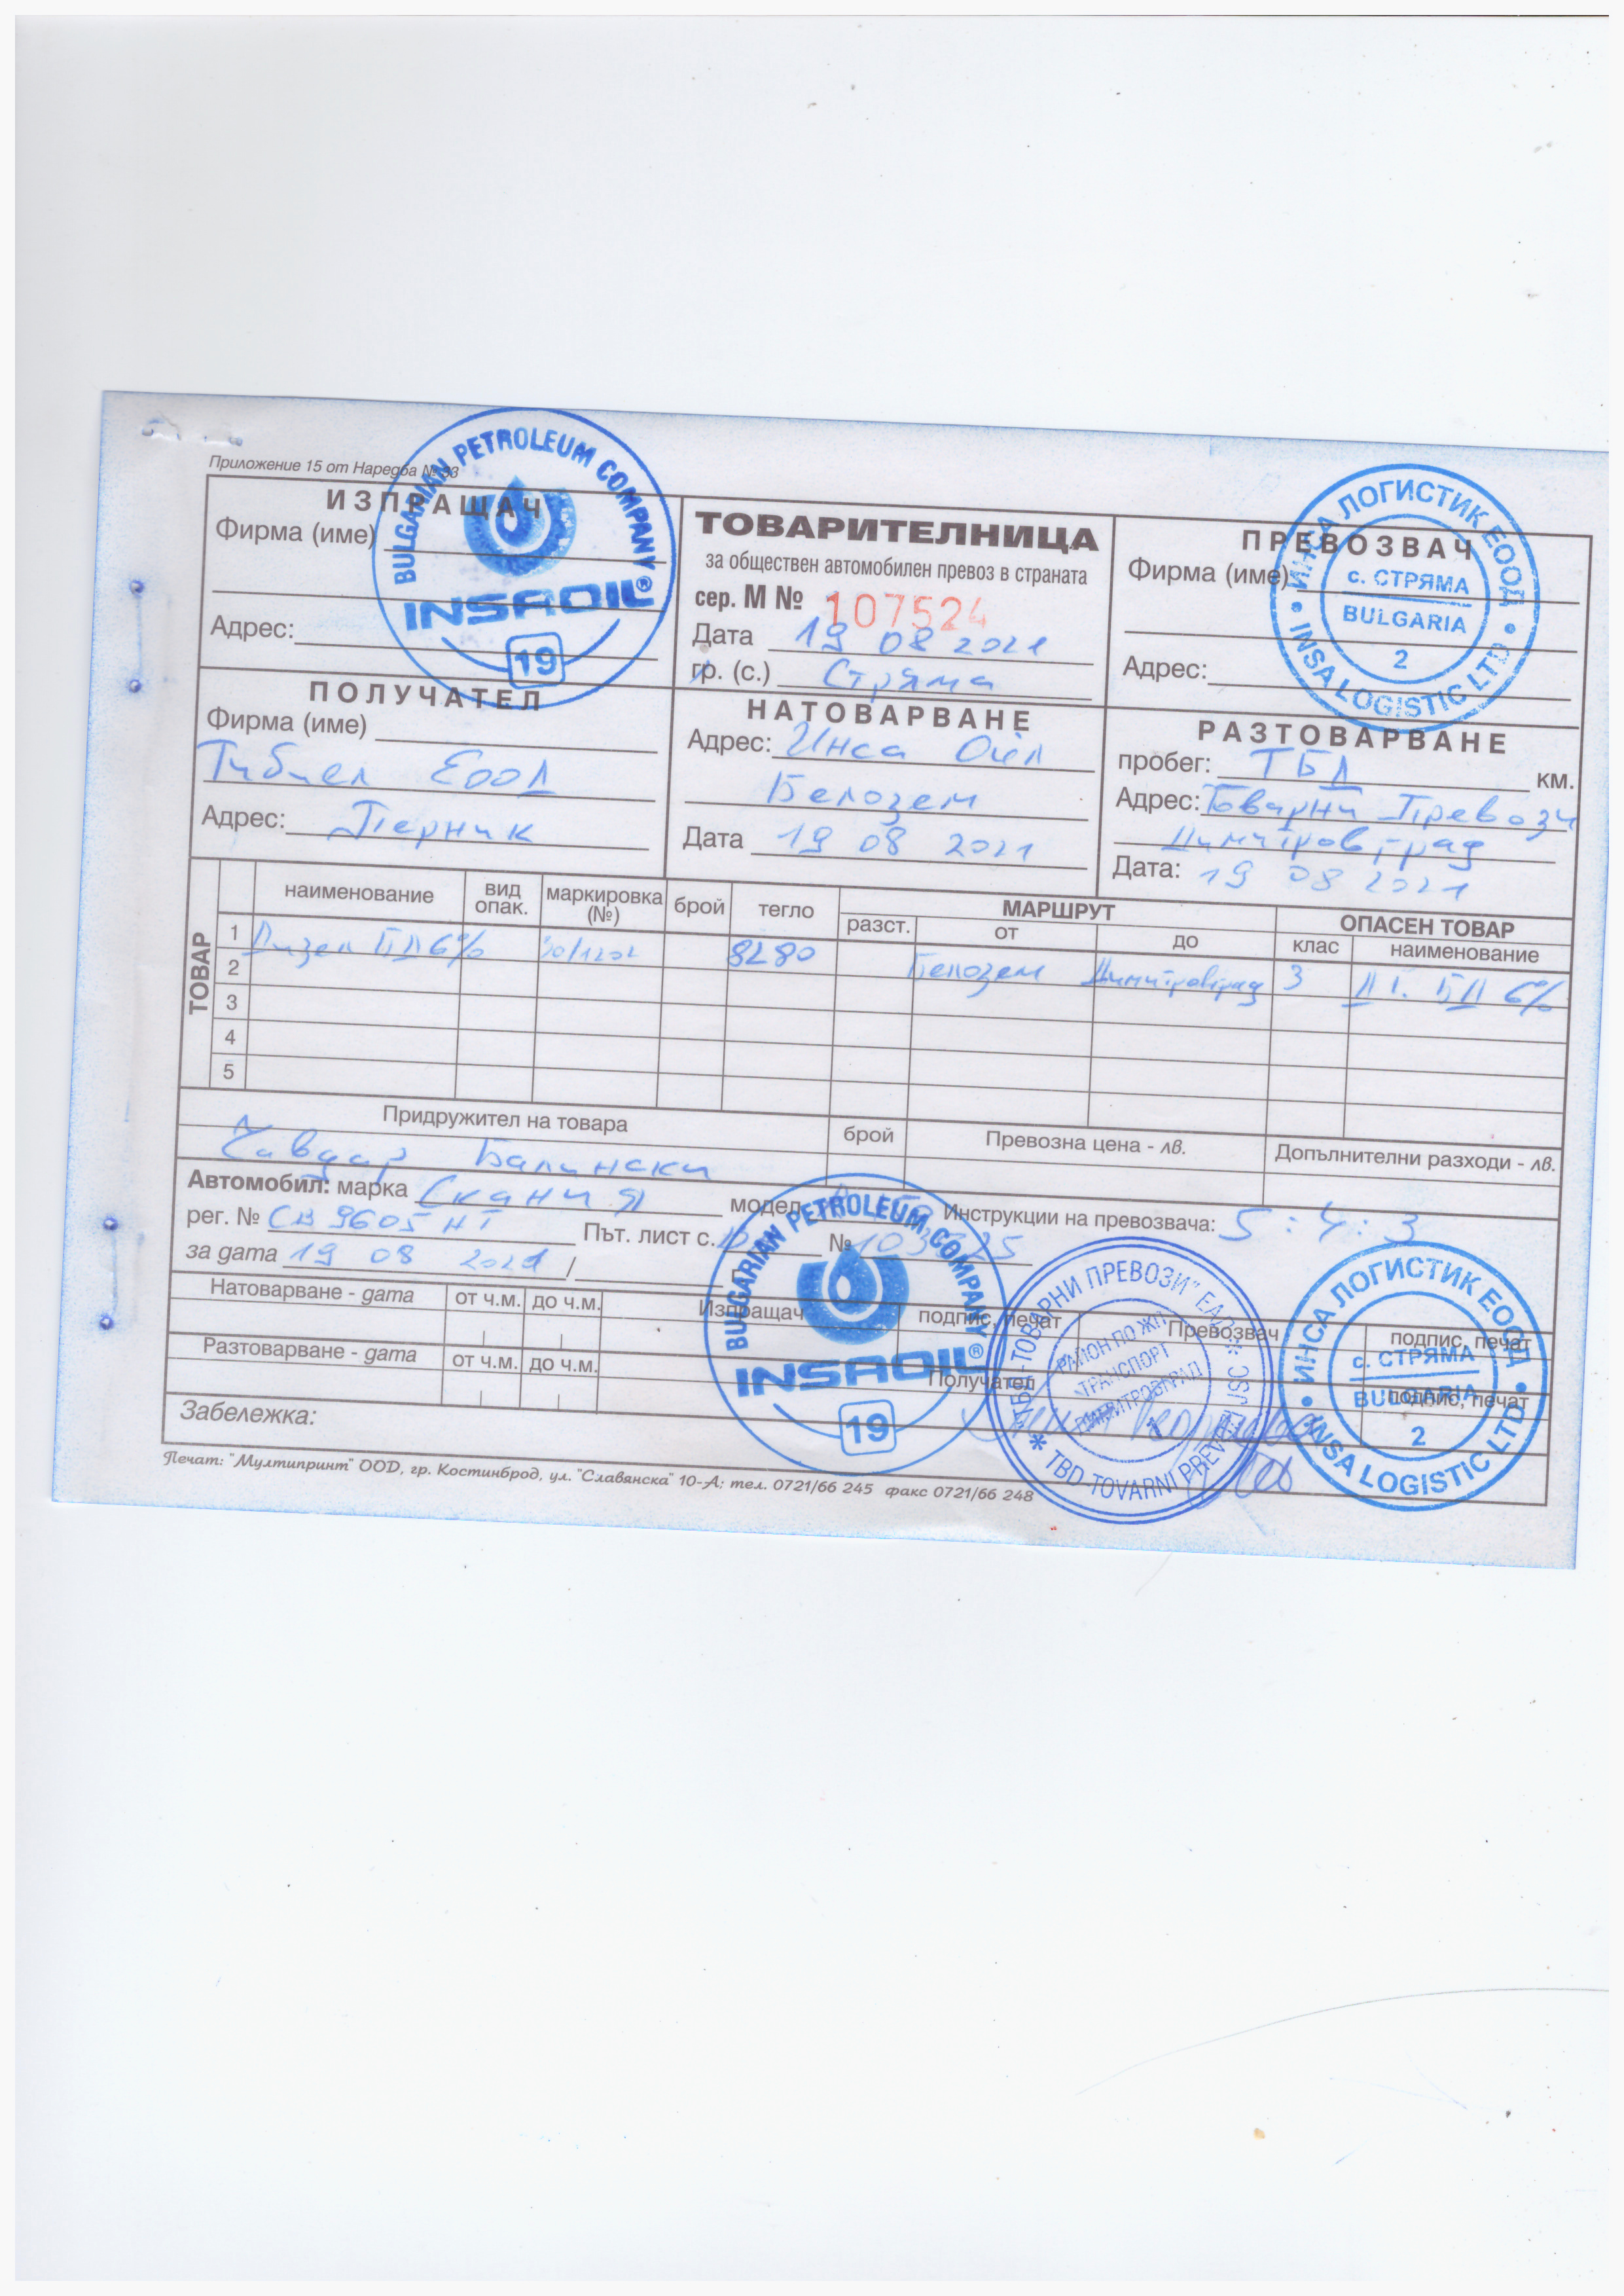 Приложение 15 от Наредба № 33
ИЗПРАЩАЧ
Фирма (име)
Адрес:
BULGARIAN PETROLEUM COMPANY
INSAOIL®
19
ТОВАРИТЕЛНИЦА
за обществен автомобилен превоз в страната
сер. М № 107524
Дата 19 08 2021
гр. (с.) Стряма
ПРЕВОЗВАЧ
Фирма (име)
Адрес:
ИНСА ЛОГИСТИК ЕООД
с. СТРЯМА
BULGARIA
2
INSA LOGISTIC LTD
ПОЛУЧАТЕЛ
Фирма (име)
Тибиел ЕООД
Адрес: Перник
НАТОВАРВАНЕ
Адрес: Инса Оил
Белозем
Дата 19 08 2021
РАЗТОВАРВАНЕ
пробег: ТБД км.
Адрес: Товарни Превози
Димитровград
Дата: 19 08 2021
ТОВАР
наименование вид опак. маркировка (№) брой тегло МАРШРУТ ОПАСЕН ТОВАР
разст. от до клас наименование
1 Дизел БД 6% 30/1202 8280 Белозем Димитровград 3 БД 6%
2
3
4
5
Придружител на товара брой Превозна цена - лв. Допълнителни разходи - лв.
Чавдар Балински
Автомобил: марка Скания модел Инструкции на превозвача: 5:4:3
рег. № СВ 9605 НТ Път. лист с. №
за дата 19 08 2021 /
Натоварване - дата от ч.м. до ч.м. Изпращач подпис, печат Превозвач подпис, печат
Разтоварване - дата от ч.м. до ч.м. Получател подпис, печат
Забележка:
BULGARIAN PETROLEUM COMPANY
INSAOIL®
19
"ТБД-ТОВАРНИ ПРЕВОЗИ" ЕАД
РАЙОН ПО ЖП
ТРАНСПОРТ
ДИМИТРОВГРАД
1
TBD-TOVARNI PREVOZI JSC
ИНСА ЛОГИСТИК ЕООД
с. СТРЯМА
BULGARIA
2
INSA LOGISTIC LTD
Печат: "Мултипринт" ООД, гр. Костинброд, ул. "Славянска" 10-А; тел. 0721/66 245 факс 0721/66 248